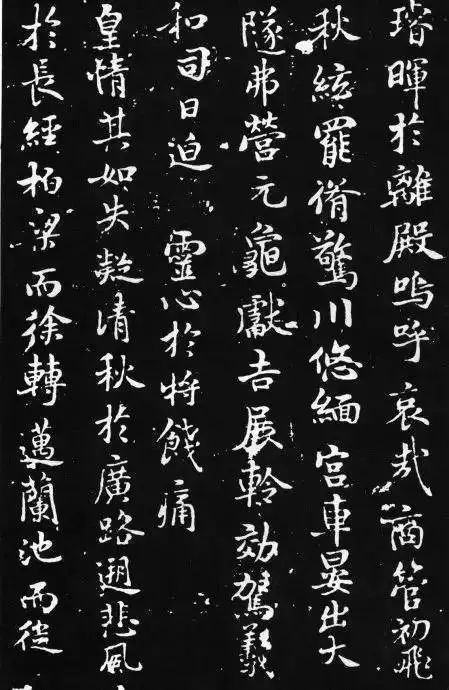 璿暉於離殿嗚呼哀哉商管初飛
秋綋罷脩驚川悠緬宮車晏出大
隧弗營元龜獻吉展軨効駕羲
和司日迫靈心於將餞痛
皇情其如失凝清秋於廣路遡悲風
於長經栢梁而徐轉邁蘭池而徙